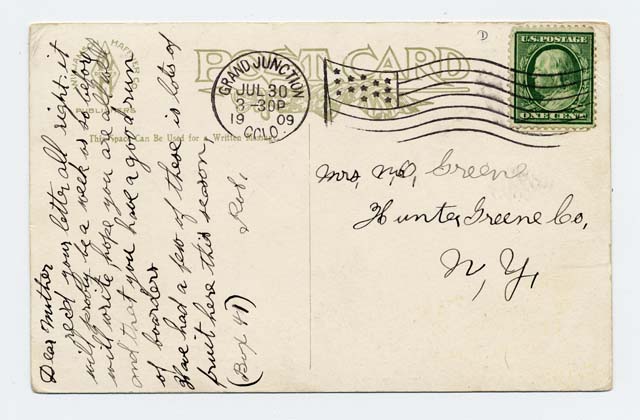 POST CARD
This Space Can Be Used for a Written Message
GRAND JUNCTION
JUL 30
3-30P
1909
COLO.
U.S. POSTAGE
ONE CENT
Dear Mother
recd your letter all right. it
will probly be a week or so before I
will write, hope you are all well
and that you have a good run
of boarders
Have had a few of these is lots of
fruit here this season
Rob,
(Box 41)
Mrs, N,C, Greene
Hunter, Greene Co,
N, Y,
D